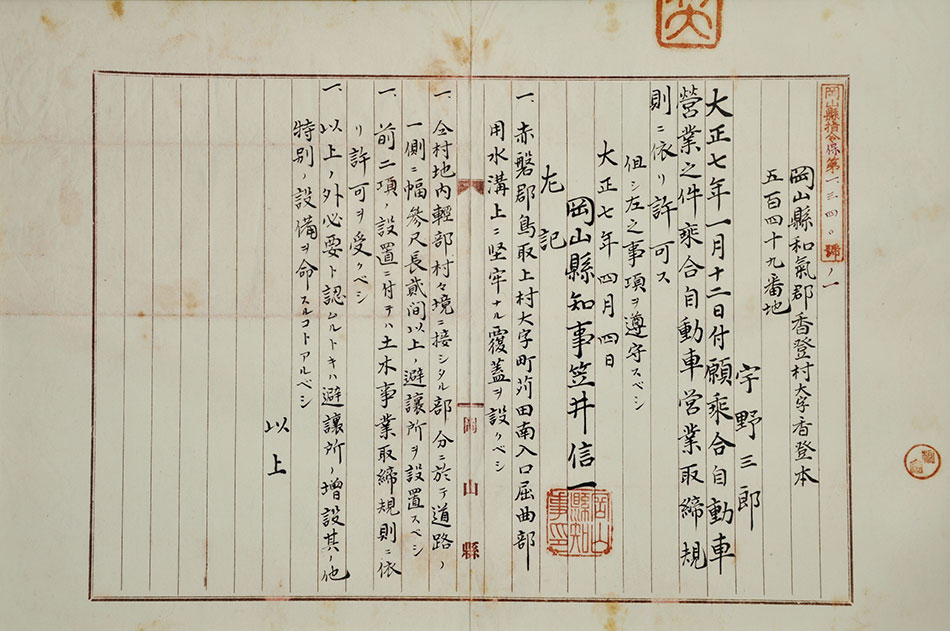 岡山縣指令保第一三四〇號ノ一
岡山縣和氣郡香登村大字香登本
五百四十九番地
宇野三郎
大正七年一月十二日付願乘合自動車
營業之件乘合自動車營業取締規
則ニ依リ許可ス
但シ左之事項ヲ遵守スベシ
大正七年四月四日
岡山縣知事笠井信一
岡山縣知事印
左記
一、赤磐郡鳥取上村大字町苅田南入口屈曲部
用水溝上ニ堅牢ナル覆蓋ヲ設クベシ
一、仝村地内輕部村々境ニ接シタル部分ニ於テ道路ノ
一側ニ幅參尺長貳間以上ノ避讓所ヲ設置スベシ
一、前二項ノ設置ニ付テハ土木事業取締規則ニ依
リ許可ヲ受クベシ
一、以上ノ外必要ト認ムルトキハ避讓所ノ增設其ノ他
特別ノ設備ヲ命スルコトアルベシ
以上
岡山縣